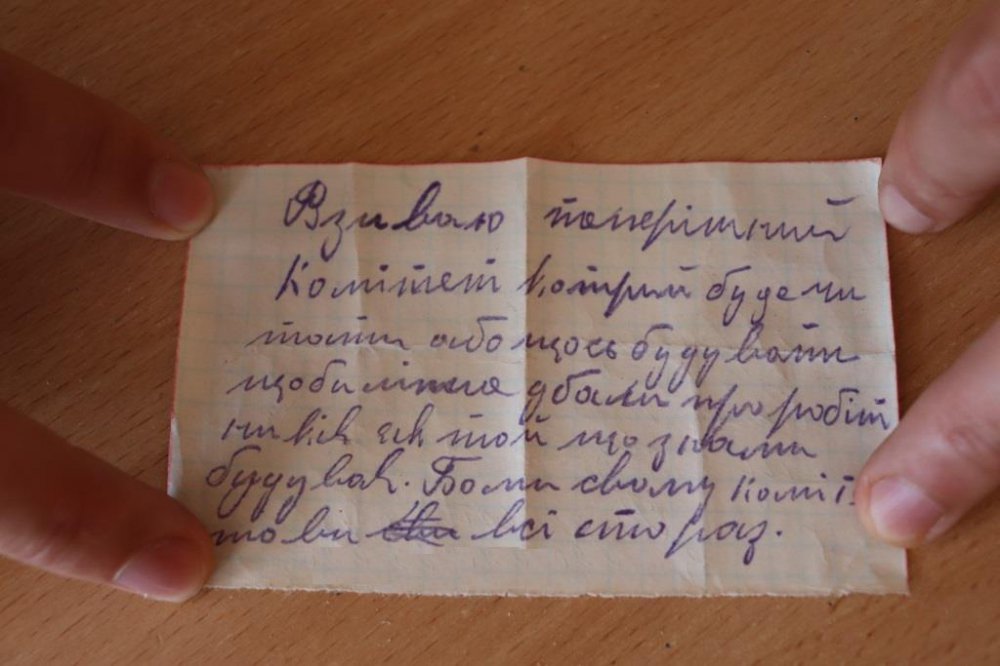 Взиваю теперішний
Комітет котрий буде чи
тати або щось будувати
щоби ліпше дбали про робіт
ників як той що з нами
будував. Бо ми свому коміте
тови всі сто раз.